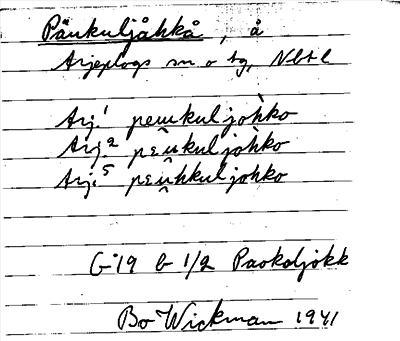 Päukuljåhkå, å
Arjeplogs sn o tg, Nbtl
Arj.¹ peuukuljoh̀ko
Arj.² pεû̯kuljoh̀ko
Arj.⁵ pεû̯hkuljohko
G:19 b 1/2 Paokoljokk
Bo Wickman 1941